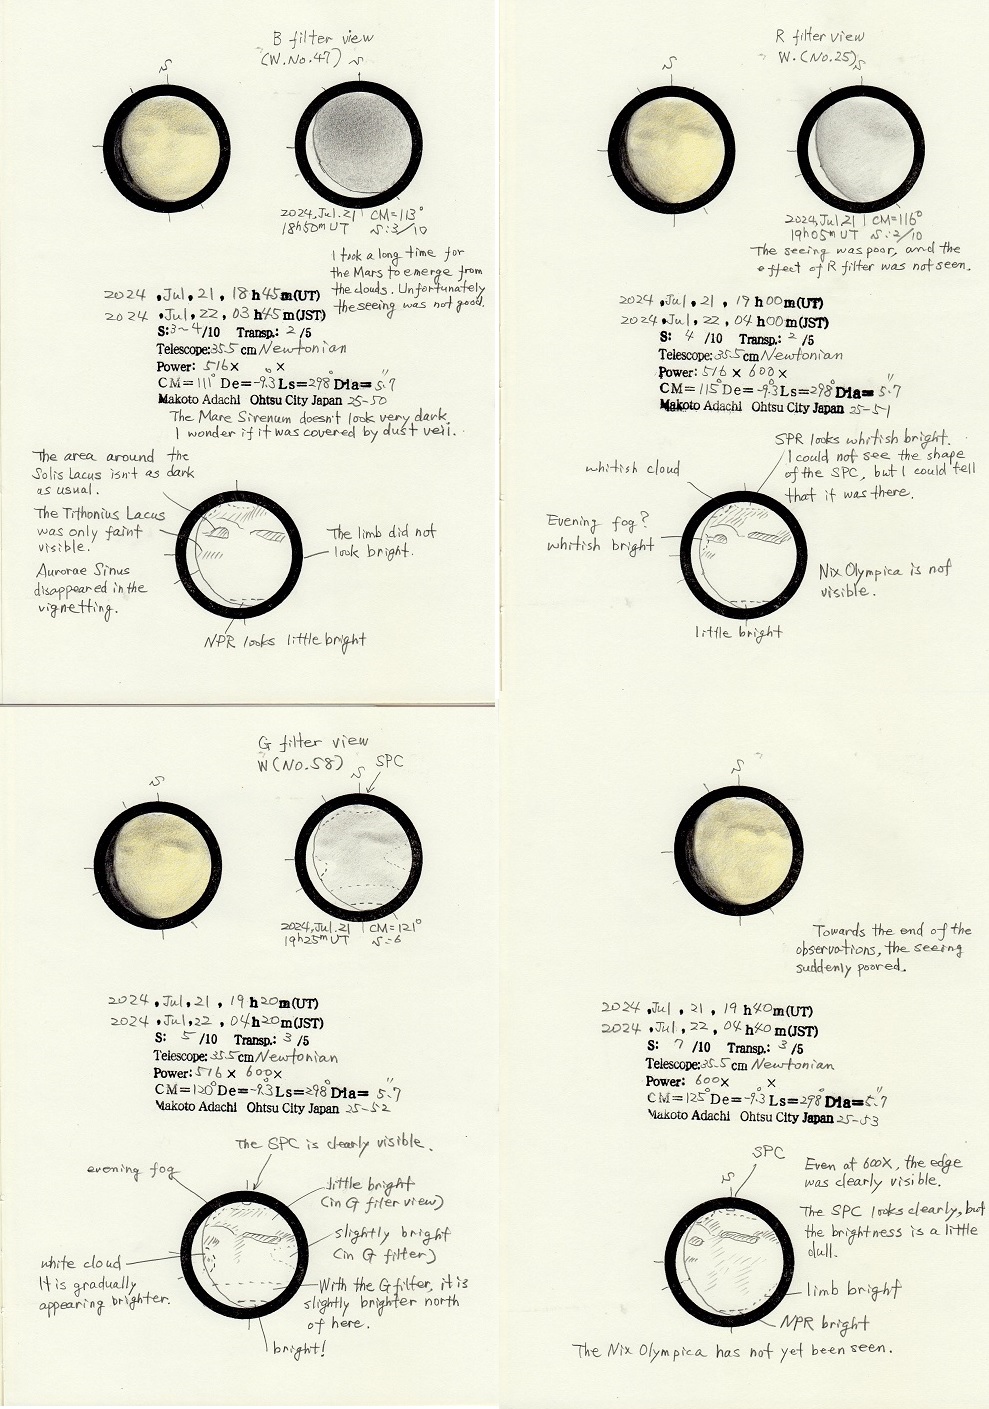 B filter view
(W.No.47)
S
S
2024, Jul. 21 | CM=113°
18h50m UT S:3/10
I took a long time for
the Mars to emerge from
the clouds. Unfortunately
the seeing was not good.
2024, Jul, 21, 18h45m(UT)
2024, Jul, 22, 03h45m(JST)
S: 3~4/10 Transp.: 2/5
Telescope: 35.5cm Newtonian
Power: 516× ×
CM=111° De=-9.3° Ls=298° Dia=5.7"
Makoto Adachi Ohtsu City Japan 25-50
The Mare Sirenum doesn't look very dark.
I wonder if it was covered by dust veil.
The area around the
Solis Lacus isn't as dark
as usual.
The Tithonius Lacus
was only faint
visible.
Aurorae Sinus
disappeared in the
vignetting.
The limb did not
look bright.
NPR looks little bright
R filter view
W.(No.25)
S
S
2024, Jul, 21 | CM=116°
19h05m UT S:2/10
The seeing was poor, and the
effect of R filter was not seen.
2024, Jul, 21, 19h00m(UT)
2024, Jul, 22, 04h00m(JST)
S: 4/10 Transp.: 2/5
Telescope: 35.5cm Newtonian
Power: 516× 600×
CM=115° De=-9.3° Ls=298° Dia=5.7"
Makoto Adachi Ohtsu City Japan 25-51
SPR looks whitish bright.
I could not see the shape
of the SPC, but I could tell
that it was there.
whitish cloud
Evening fog?
whitish bright
Nix Olympica is not
visible.
little bright
G filter view
W(No.58)
S
S
SPC
2024, Jul. 21 | CM=121°
19h25m UT S:6
2024, Jul, 21, 19h20m(UT)
2024, Jul, 22, 04h20m(JST)
S: 5/10 Transp.: 3/5
Telescope: 35.5cm Newtonian
Power: 516× 600×
CM=120° De=-9.3° Ls=298° Dia=5.7"
Makoto Adachi Ohtsu City Japan 25-52
The SPC is clearly visible.
evening fog
little bright
(in G filer view)
slightly bright
(in G filter)
white cloud
It is gradually
appearing brighter.
With the G filter, it is
slightly brighter north
of here.
bright!
S
Towards the end of the
observations, the seeing
suddenly poored.
2024, Jul, 21, 19h40m(UT)
2024, Jul, 22, 04h40m(JST)
S: 7/10 Transp.: 3/5
Telescope: 35.5cm Newtonian
Power: 600× ×
CM=125° De=-9.3° Ls=298° Dia=5.7"
Makoto Adachi Ohtsu City Japan 25-53
SPC
S
Even at 600X, the edge
was clearly visible.
The SPC looks clearly, but
the brightness is a little
dull.
limb bright
NPR bright
The Nix Olympica has not yet been seen.